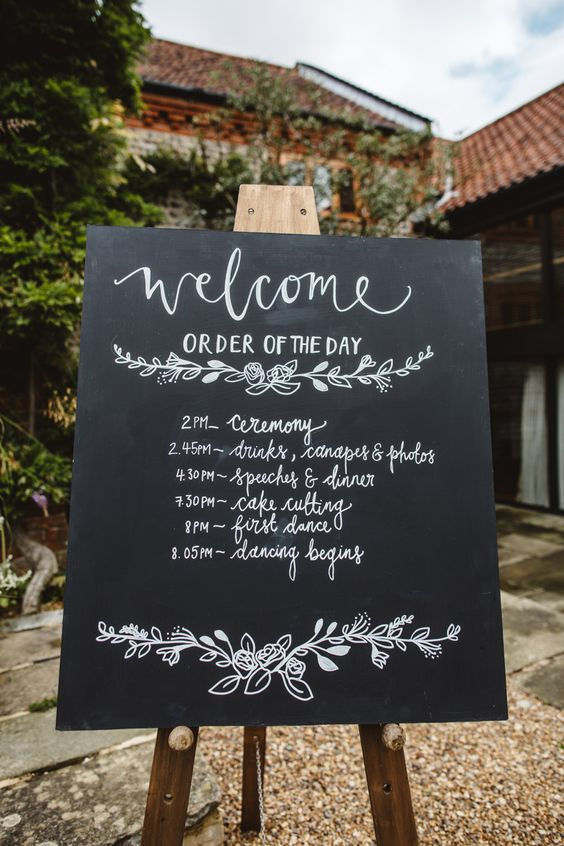 welcome
ORDER OF THE DAY
2PM_ ceremony
2.45PM~ drinks, canapes & photos
4.30PM~ speeches & dinner
7.30PM~ cake cutting
8PM~ first dance
8.05PM~ dancing begins